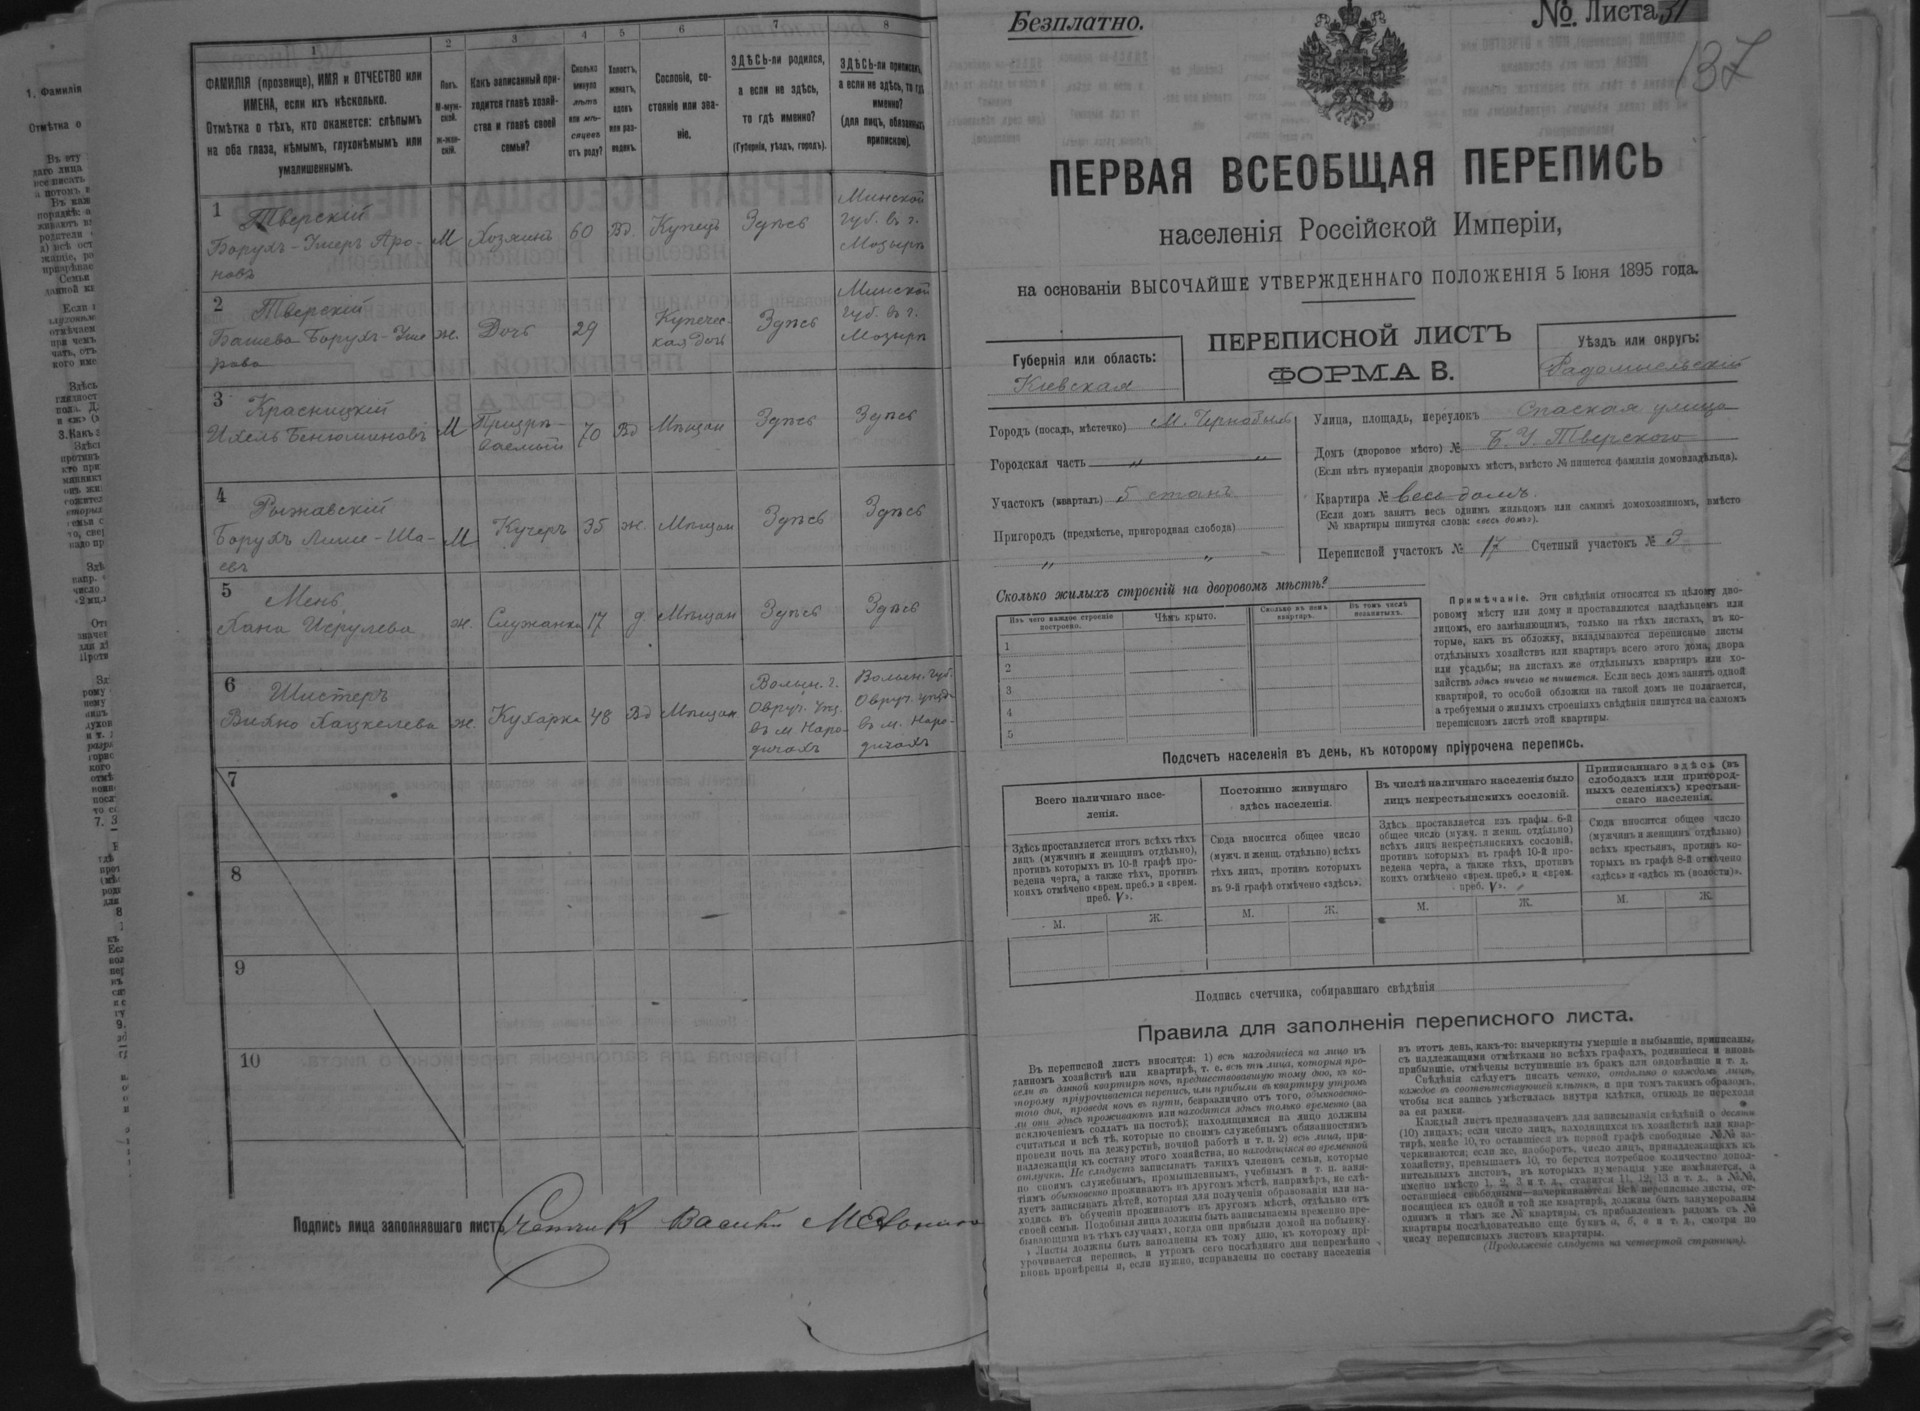 1 2 3 4 5 6 7 8
ФАМИЛІЯ (прозвище), ИМЯ и ОТЧЕСТВО или
ИМЕНА, если ихъ нѣсколько.
Отмѣтка о тѣхъ, кто окажется: слѣпымъ
на оба глаза, нѣмымъ, глухонѣмымъ или
умалишеннымъ.
Полъ.
М-муж-
ской.
Ж-жен-
скій.
Какъ записанный при-
ходится главѣ хозяй-
ства и главѣ своей
семьи?
Сколько
минуло
лѣтъ
или мѣ-
сяцевъ
отъ роду?
Холостъ,
женатъ,
вдовъ
или раз-
веденъ.
Сословіе, со-
стояніе или зва-
ніе.
ЗДѢСЬ-ли родился,
а если не здѣсь,
то гдѣ именно?
(Губернія, уѣздъ, городъ).
ЗДѢСЬ-ли приписанъ,
а если не здѣсь, то гдѣ
именно?
(для лицъ, обязанныхъ
припиской).
1 Тверскій
Борухъ-Ушеръ Аро-
новъ
М Хозяинъ 60 Вд. Купецъ Здѣсь
Минской
губ. въ г.
Мозырѣ
2 Тверскій
Башева Борухъ-Уше
рова
ж. Дочь 29
Купечес-
кая дочь
Здѣсь
Минской
губ. въ г.
Мозырѣ
3 Красницкій
Ихель Бенюминовъ
М
Призрѣ-
ваемый
70 Вд Мѣщан Здѣсь Здѣсь
4 Рыжавскій
Борухъ Лише-Ша-
евъ
М Кучеръ 35 ж. Мѣщан Здѣсь Здѣсь
5 Мень
Хана Исрулева
ж. Служанка 17 д. Мѣщан Здѣсь Здѣсь
6 Шистеръ
Вихно Хацкелева
ж. Кухарка 48 Вд Мѣщан.
Волын. г.
Овруч. уѣз.
въ м Наро-
дичахъ
Волын. губ.
Овруч. уѣзд.
въ м. Наро-
дичахъ
7
8
9
10
Подпись лица заполнявшаго листъ Счетчик Василій
Безплатно.
№ Листа 31
137
ПЕРВАЯ ВСЕОБЩАЯ ПЕРЕПИСЬ
населенія Россійской Имперіи,
на основаніи ВЫСОЧАЙШЕ УТВЕРЖДЕННАГО ПОЛОЖЕНІЯ 5 Іюня 1895 года.
Губернія или область:
Кіевская
ПЕРЕПИСНОЙ ЛИСТЪ
ФОРМА В.
Уѣздъ или округъ:
Радомысльскій
Городъ (посадъ, мѣстечко) м. Чернобыль
Городская часть „ „
Участокъ (кварталъ) 5 станъ
Пригородъ (предмѣстье, пригородная слобода)
„ „
Улица, площадь, переулокъ Спаская улица
Домъ (дворовое мѣсто) № Б. У. Тверского
(Если нѣтъ нумераціи дворовыхъ мѣстъ, вмѣсто № пишется фамилія домовладѣльца).
Квартира № весь домъ.
(Если домъ занятъ весь однимъ жильцомъ или самимъ домохозяиномъ, вмѣсто
№ квартиры пишутся слова: «весь домъ»).
Переписной участокъ № 17 Счетный участокъ № 3
Сколько жилыхъ строеній на дворовомъ мѣстѣ?
Изъ чего каждое строеніе
построено.
Чѣмъ крыто.
Сколько въ немъ
квартиръ.
Въ томъ числѣ
незанятыхъ.
1
2
3
4
5
Примѣчаніе. Эти свѣдѣнія относятся къ цѣлому дво-
ровому мѣсту или дому и проставляются владѣльцемъ или
лицомъ, его замѣняющимъ, только на тѣхъ листахъ, въ ко-
торые, какъ въ обложку, вкладываются переписные листы
отдѣльныхъ хозяйствъ или квартиръ всего этого дома, двора
или усадьбы; на листахъ же отдѣльныхъ квартиръ или хо-
зяйствъ здѣсь ничего не пишется. Если весь домъ занятъ одной
квартирой, то особой обложки на такой домъ не полагается,
а требуемыя о жилыхъ строеніяхъ свѣдѣнія пишутся на самомъ
переписномъ листѣ этой квартиры.
Подсчетъ населенія въ день, къ которому пріурочена перепись.
Всего наличнаго насе-
ленія.
Постоянно живущаго
здѣсь населенія.
Въ числѣ наличнаго населенія было
лицъ некрестьянскихъ сословій.
Приписаннаго здѣсь (въ
слободахъ или пригород-
ныхъ селеніяхъ) крестьян-
скаго населенія.
Здѣсь проставляется итогъ всѣхъ тѣхъ
лицъ (мужчинъ и женщинъ отдѣльно),
противъ которыхъ въ 10-й графѣ про-
ведена черта, а также тѣхъ, противъ
коихъ отмѣчено «врем. преб.» и «врем.
преб. V».
Сюда вносится общее число
(мужч. и женщ. отдѣльно) всѣхъ
тѣхъ лицъ, противъ которыхъ
въ 9-й графѣ отмѣчено «здѣсь».
Здѣсь проставляется изъ графы 6-й
общее число (мужч. и женщ. отдѣльно)
всѣхъ лицъ некрестьянскихъ сословій,
противъ которыхъ въ графѣ 10-й про-
ведена черта, а также тѣхъ, противъ
коихъ отмѣчено «врем. преб.» и «врем.
преб. V».
Сюда вносится общее число
(мужчинъ и женщинъ отдѣльно)
всѣхъ крестьянъ, противъ ко-
торыхъ въ графѣ 8-й отмѣчено
«здѣсь» и «здѣсь къ (волости)».
М. Ж. М. Ж. М. Ж. М. Ж.
Подпись счетчика, собиравшаго свѣдѣнія
Правила для заполненія переписного листа.
Въ переписной листъ вносятся: 1) всѣ находящіеся на лицо въ
данномъ хозяйствѣ или квартирѣ, т. е. всѣ тѣ лица, которыя про-
вели въ данной квартирѣ ночь, предшествовавшую тому дню, къ ко-
торому пріурочивается перепись, или прибыли въ квартиру утромъ
того дня, проведя ночь въ пути, безразлично отъ того, обыкновенно-
ли они здѣсь проживаютъ или находятся здѣсь только временно (за
исключеніемъ солдатъ на постоѣ); находящимися на лицо должны
считаться и всѣ тѣ, которые по своимъ служебнымъ обязанностямъ
провели ночь на дежурствѣ, ночной работѣ и т. п. 2) всѣ лица, при-
надлежащія къ составу этого хозяйства, но находящіяся во временной
отлучкѣ. Не слѣдуетъ записывать такихъ членовъ семьи, которые
по своимъ служебнымъ, промышленнымъ, учебнымъ и т. п. заня-
тіямъ обыкновенно проживаютъ въ другомъ мѣстѣ, напримѣръ, не слѣ-
дуетъ записывать дѣтей, которыя для полученія образованія или на-
ходясь въ обученіи проживаютъ въ другомъ мѣстѣ, отдѣльно отъ
своей семьи. Подобныя лица должны быть записываемы временно пре-
бывающими въ тѣхъ случаяхъ, когда они прибыли домой на побывку.
Листы должны быть заполнены къ тому дню, къ которому прі-
урочивается перепись, и утромъ сего послѣдняго дня непремѣнно
вновь провѣрены и, если нужно, исправлены по составу населенія
въ этотъ день, какъ-то: вычеркнуты умершіе и выбывшіе, приписаны,
съ надлежащими отмѣтками во всѣхъ графахъ, родившіеся и вновь
прибывшіе, отмѣчены вступившіе въ бракъ или овдовѣвшіе и т. д.
Свѣдѣнія слѣдуетъ писать четко, отдѣльно о каждомъ лицѣ,
каждое въ соотвѣтствующей клѣткѣ, и при томъ такимъ образомъ,
чтобы вся запись умѣстилась внутри клѣтки, отнюдь не переходя
за ея рамки.
Каждый листъ предназначенъ для записыванія свѣдѣній о десяти
(10) лицахъ; если число лицъ, находящихся въ хозяйствѣ или квар-
тирѣ, менѣе 10, то оставшіеся въ первой графѣ свободные №№ за-
черкиваются; если же, наоборотъ, число лицъ, принадлежащихъ къ
хозяйству, превышаетъ 10, то берется потребное количество допол-
нительныхъ листовъ, въ которыхъ нумерація уже измѣняется, а
именно вмѣсто 1, 2, 3 и т. д., ставится 11, 12, 13 и т. д., а №№,
оставшіеся свободными—зачеркиваются. Всѣ переписные листы, от-
носящіеся къ одной и той же квартирѣ, должны быть занумерованы
однимъ и тѣмъ же № квартиры, съ прибавленіемъ рядомъ съ №
квартиры послѣдовательно еще буквъ а, б, в и т. д., смотря по
числу переписныхъ листовъ квартиры.
(Продолженіе слѣдуетъ на четвертой страницѣ).